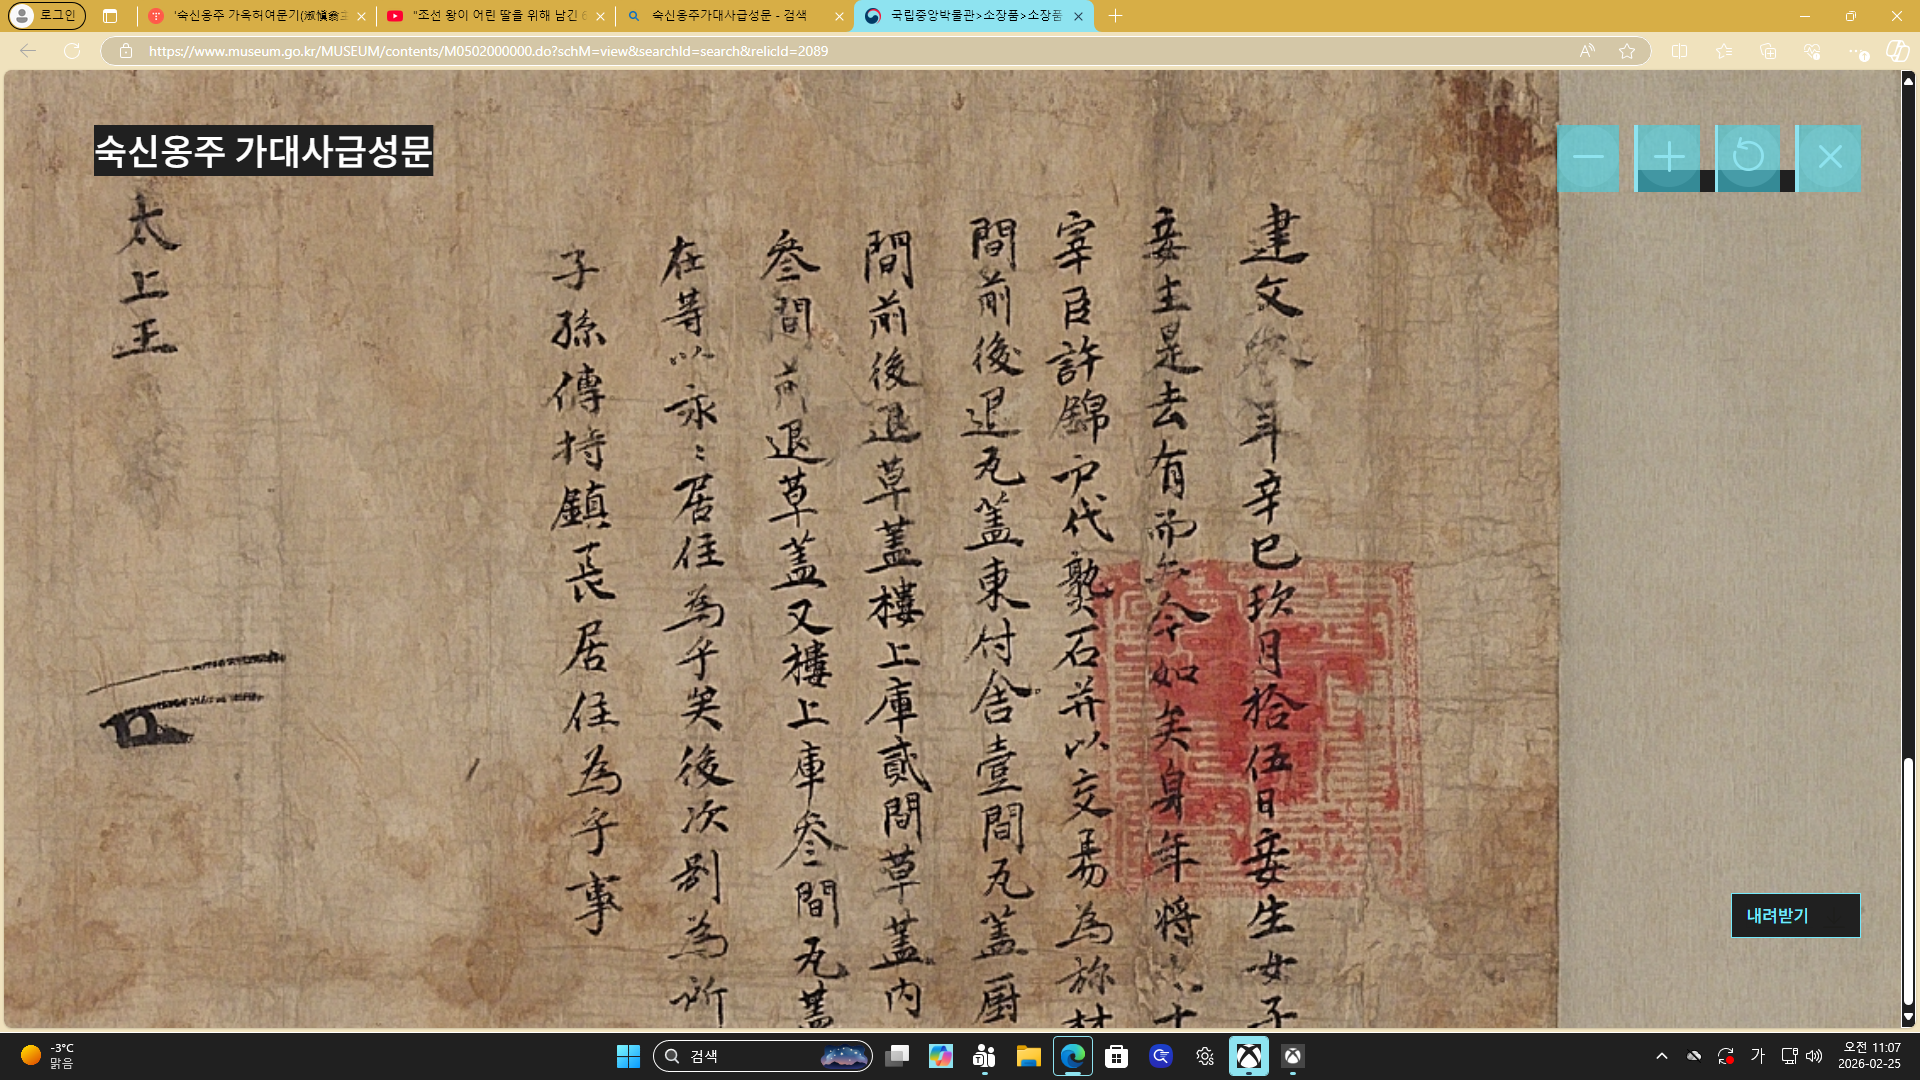 로그인
'숙신옹주 가옥허여문기(淑愼翁主
"조선 왕이 어린 딸을 위해 남긴 6
숙신옹주가대사급성문 - 검색
국립중앙박물관>소장품>소장품
https://www.museum.go.kr/MUSEUM/contents/M0502000000.do?schM=view&searchId=search&relicId=2089
숙신옹주 가대사급성문
建文年辛巳玖月拾伍日妾生女子
妾主是去有而今如矣身年將六十
宰臣許錦戶代熟石幷以交易為材
間前後退瓦蓋東付舍壹間瓦蓋厨
間前後退草蓋樓上庫貳間草蓋內
叁間前退草蓋又樓上庫叁間瓦蓋
在等以永〻居住為乎矣後次別為所
子孫傳持鎭長居住為乎事
太上王
내려받기
-3°C
맑음
검색
가
오전 11:07
2026-02-25